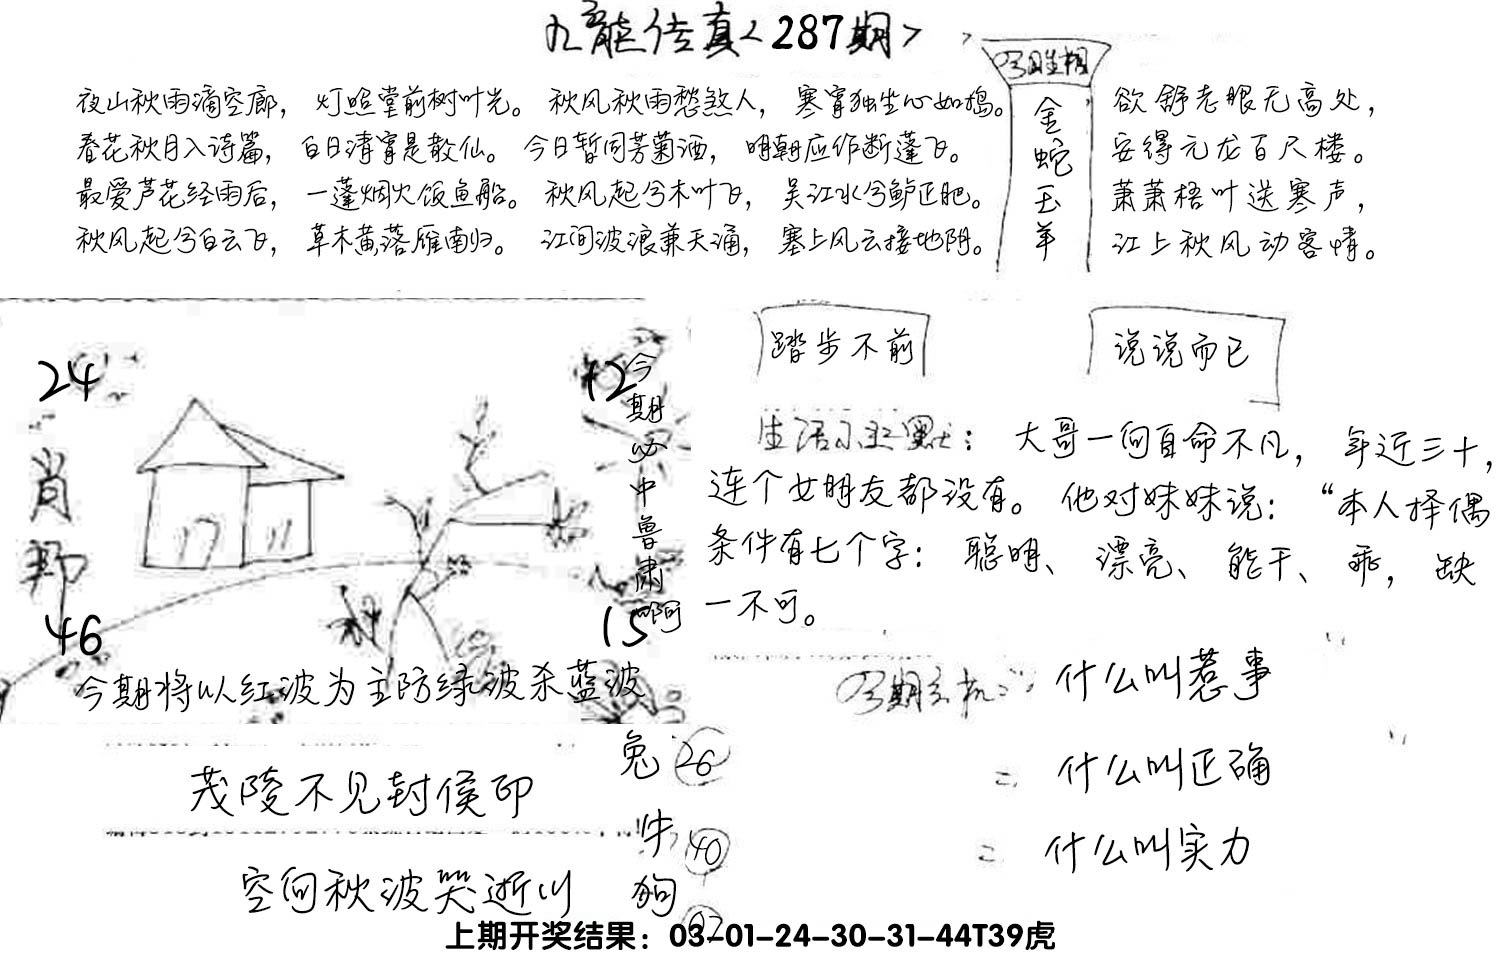 九龙传真<287期>
夜山秋雨滴空廊，灯照堂前树叶光。秋风秋雨愁煞人，寒宵独坐心如捣。
春花秋月入诗篇，白日清宵是散仙。今日暂同芳菊酒，明朝应作断蓬飞。
最爱芦花经雨后，一蓬烟火饭鱼船。秋风起兮木叶飞，吴江水兮鲈正肥。
秋风起兮白云飞，草木黄落雁南归。江间波浪兼天涌，塞上风云接地阴。
金蛇玉羊
欲舒老眼无高处，
安得元龙百尺楼。
萧萧梧叶送寒声，
江上秋风动客情。
踏步不前
说说而已
24
12
肖
46
15
今期必中鲁肃啊
今期将以红波为主防绿波杀蓝波
生活小幽默：大哥一向自命不凡，年近三十，
连个女朋友都没有。他对妹妹说：“本人择偶
条件有七个字：聪明、漂亮、能干、乖，缺
一不可。
什么叫惹事
二 什么叫正确
二 什么叫实力
茂陵不见封侯印
空向秋波哭逝川
兔 26
牛 40
狗 02
上期开奖结果：03-01-24-30-31-44T39虎